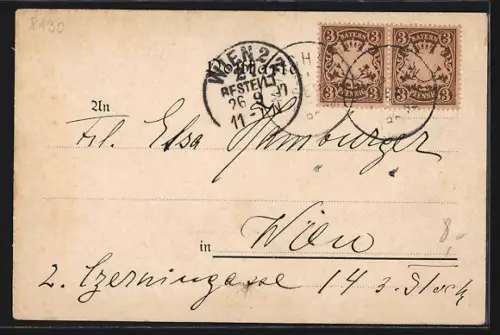 8430
BAYERN BAYERN
3 3 3 3
PFENNIG PFENNIG
3 3 3 3
WIEN 2/2
BESTELLT
26 9
11
Postkarte
An
Frl. Elsa Hamburger
in Wien
8,-
2. Czerningasse 14 3. Stock